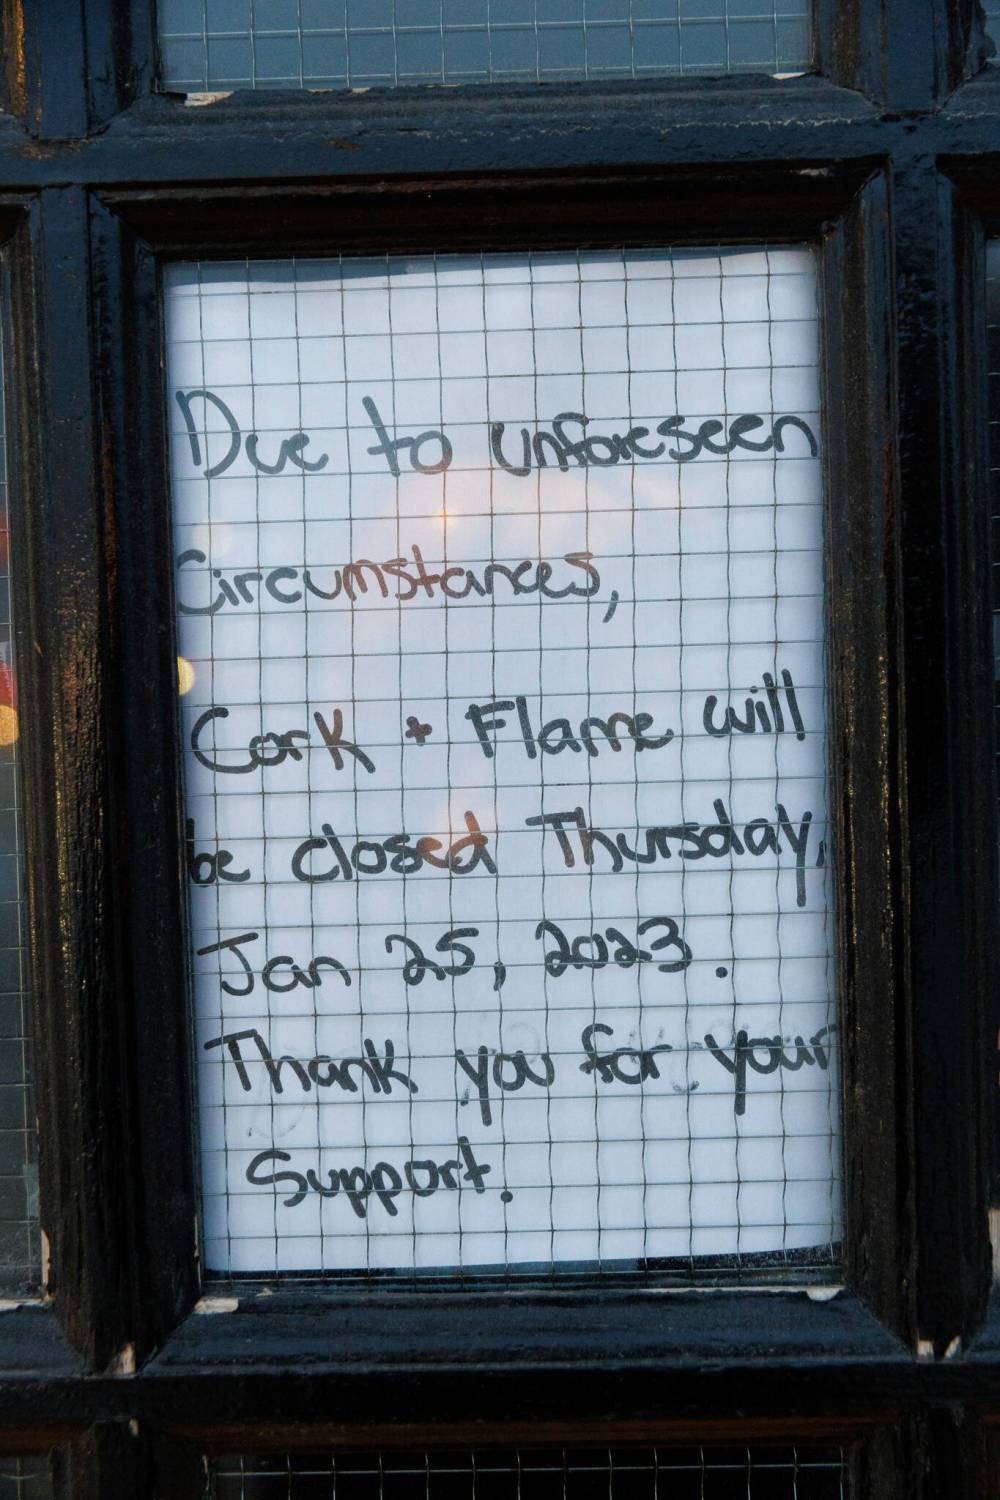 Due to unforeseen
Circumstances,
Cork + Flame will
be closed Thursday,
Jan 25, 2023.
Thank you for your
Support.